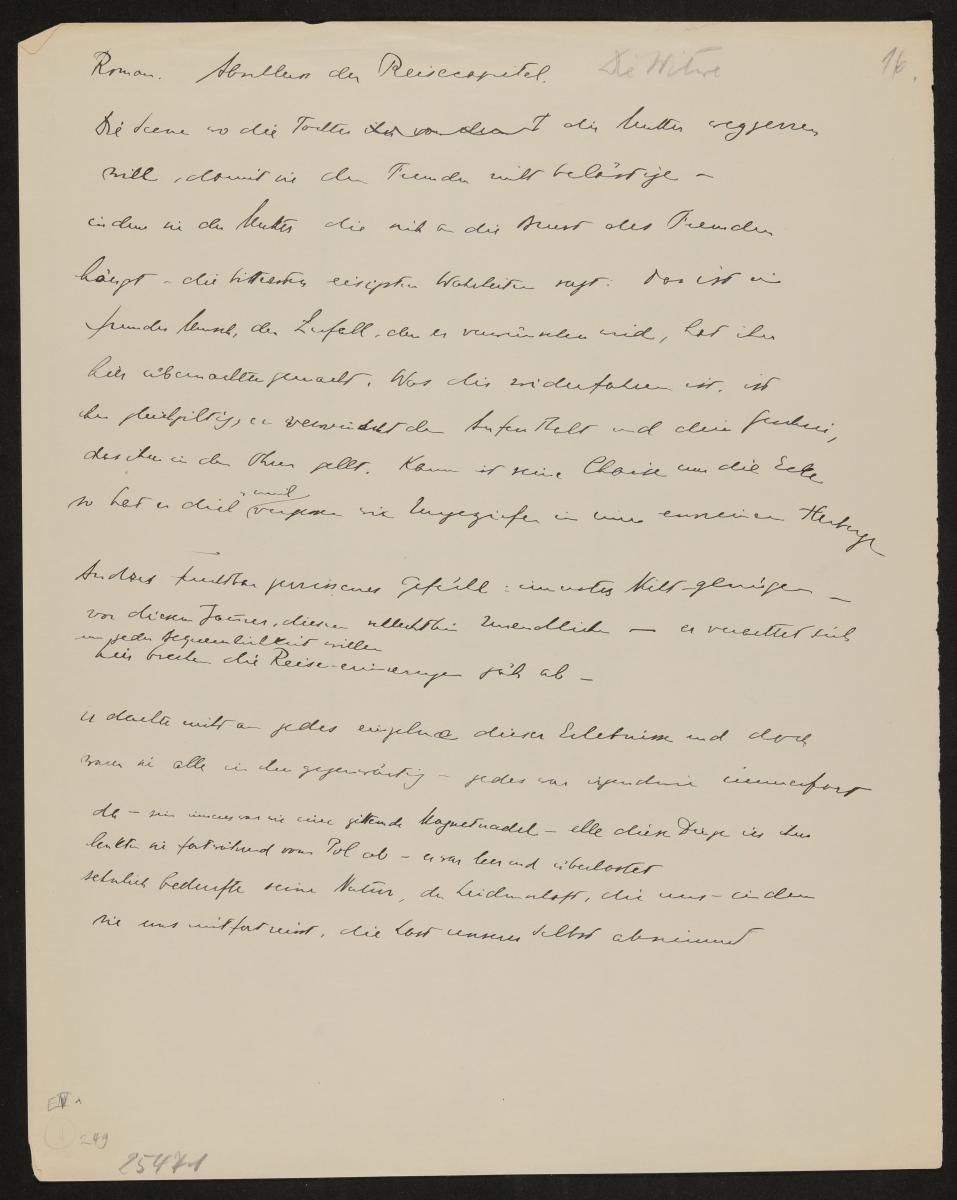 Roman. Abschluss der Reisecapitel. Die Witwe 16.
Die Scene wo die Tochter die Mutter wegzerren
will, damit sie den Fremden nicht belästige –
indem sie der Mutter die sich an die Brust des Fremden
hängt – die bittersten eisigsten Wahrheiten sagt: Das ist ein
fremder Mensch, der Zufall, den er verwünschen wird, hat ihn
hier übernachten gemacht. Was dir widerfahren ist, ist
ihm gleichgiltig, er verwünscht den Aufenthalt und dein Geschrei,
das ihm in den Ohren gellt. Kaum ist seine Chaise um die Ecke
so hat er dich und vergessen wie Ungeziefer in einer Herberge
Andres furchtbar zerrissenes Gefühl: Nicht-genügen –
vor diesem Jammer, diesem schlechthin Unendlichen — er verachtet sich
um jeder Bequemlichkeit willen
hier brechen die Reise-erinnerungen jäh ab –
er dachte nicht an jedes einzelne dieser Erlebnisse und doch
waren sie alle in ihm gegenwärtig – jedes war irgendwie immerfort
da – sein war wie eine zitternde Magnetnadel – alle diese Dinge in ihm
lenkten sie fortwährend vom Pol ab – er war leer und überlastet
sehnlich bedurfte seine Natur, der Leidenschaft, die uns – indem
sie uns mitfortreisst, die Last unseres Selbst abnimmt
E IV
11 249
25471